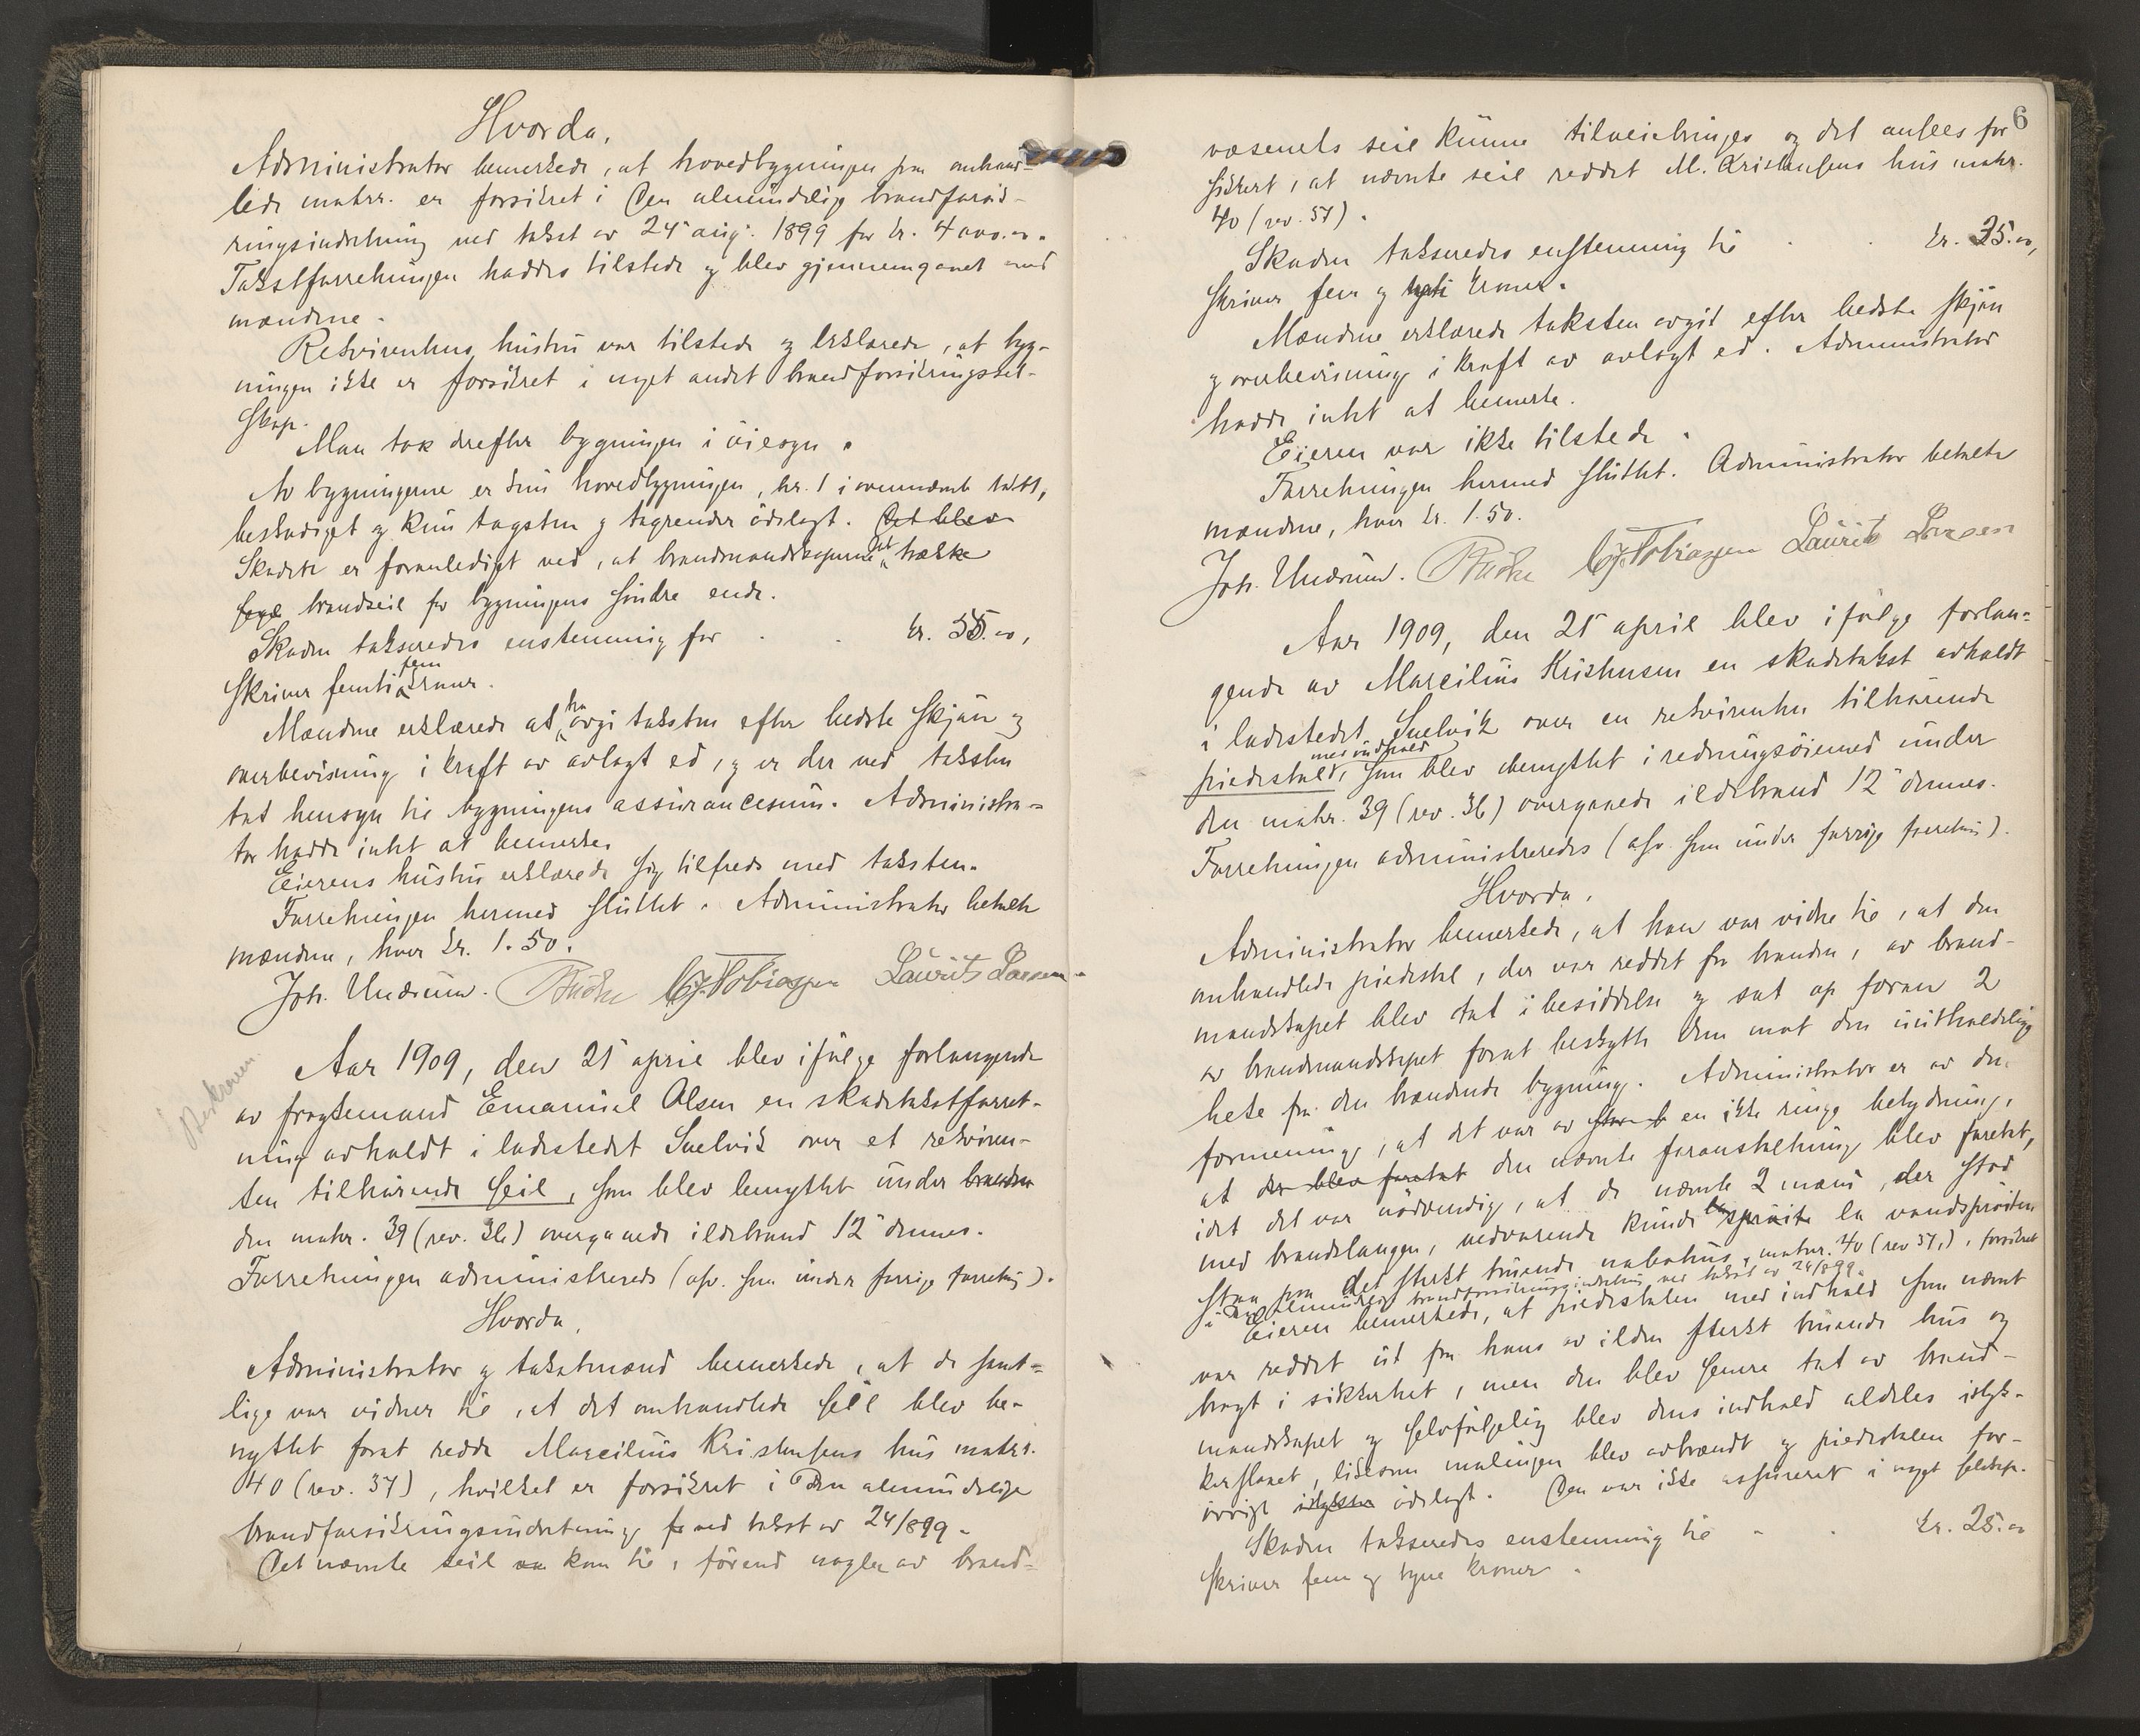 Hvorda.
Administrator bemerkede, at hovedbygningen paa omhand-
lede matrr. er forsikret i Den almindelige brandforsik-
ringsindretning ved takst av 24 aug. 1899 for kr. 4000.00.
Takstforretningen haddes tilstede og blev gjennemgaaet med
mændene.
Rekvirentens hustru var tilstede og erklærede, at byg-
ningen ikke er forsikret i noget andet brandforsikringssel-
skap.
Man tok derefter bygningen i øiesyn.
Av bygningerne er kun hovedbygningen, nr. 1 i ovennævnte takst,
beskadiget og kun tagsten og tagrender ødelagt. Det blev
Skaden er foranlediget ved, at brandmandskaperne trække
brandseil for bygningens søndre ende.
Skaden takseredes enstemmig for kr. 55.00,
skriver femti fem kroner.
Mændene erklærede at ha avgi taksten efter bedste skjøn og
overbevisning i kraft av avlagt ed, og er der ved taksten
tat hensyn til bygningens assurancesum. Administra-
tor hadde intet at bemerke.
Eierens hustru erklærede sig tilfreds med taksten.
Forretningen hermed sluttet. Administrator betalte
mændene, hver kr. 1.50.
Joh. Undrum. C. J. Tobiassen Laurits Larsen
Beskreven
Aar 1909, den 21 april blev ifølge forlangende
av fragtemand Emanuel Olsen en skadetakstforret-
ning avholdt i ladestedet Svelvik over et rekviren-
ten tilhørende seil, som blev benyttet under branden
den matr. 39 (rev. 36) overgaaede ildebrand 12 dennes.
Forretningen administreredes (osv. som under forrige forretning).
Hvorda.
Administrator og takstmænd bemerkede, at de samt-
lige var vidner til, at det omhandlede seil blev be-
nyttet forat redde Marcilius Kristensens hus matr.
40 (rev. 37), hvilket er forsikret i Den almindelige
brandforsikringsindretning ved takst av 24/8 99.
Det nævnte seil kom til, førend nogle av brand-
6
væsenets seil kunne tilveiebringes og det ansees for
sikkert, at nævnte seil reddet M. Kristensens hus matr.
40 (rev. 37).
Skaden takseredes enstemmig til kr. 35.00,
skriver fem og kroner.
Mændene erklærede taksten avgit efter bedste skjøn
og overbevisning i kraft av avlagt ed. Administrator
hadde intet at bemerke.
Eieren var ikke tilstede.
Forretningen hermed sluttet. Administrator betalte
mændene, hver kr. 1.50.
Joh. Undrum. C. J. Tobiassen Laurits Larsen
Aar 1909, den 21 april blev ifølge forlan-
gende av Marcilius Kristensen en skadetakst avholdt
i ladestedet Svelvik over en rekvirenten tilhørende
piedestal, med indhold som blev benyttet i redningsøiemed under
den matr. 39 (rev. 36) overgaaede ildebrand 12 dennes.
Forretningen administreredes (osv. som under forrige forretning).
Hvorda.
Administrator bemerkede, at han var vidne til, at den
omhandlede piedestal, der var reddet fra branden, av brand-
mandskapet blev tat i besiddelse og sat op foran 2
av brandmandskapet forat beskytte dem mot den uutholdelige
hete fra den brændende bygning. Administrator er av den
formening, at det var av en ikke ringe betydning,
at der blev foretat den nævnte foranstaltning blev foretat,
idet det var nødvendig, at de nævnte 2 mænd, der stod
med brandslangen, vedvarende kunde la vandsprøiten
staa paa det sterkt truende nabohus, matr. 40 (rev 37), forsikret
i Den almindelige brandforsikringsindretning ved takst av 24/8 99.
Eieren bemerkede, at piedestalen med indhold som nævnt
var reddet ut fra hans av ilden sterkt truende hus og
bragt i sikkerhet, men den blev senere tat av brand-
mandskapet og selvfølgelig blev dens indhold aldeles istyk-
kerslaaet, likesom malingen blev avbrændt og piedestalen for-
øvrigt ødelagt. Den var ikke assureret i noget selskap.
Skaden takseredes enstemmig til kr. 25.00
skriver fem og tyve kroner.